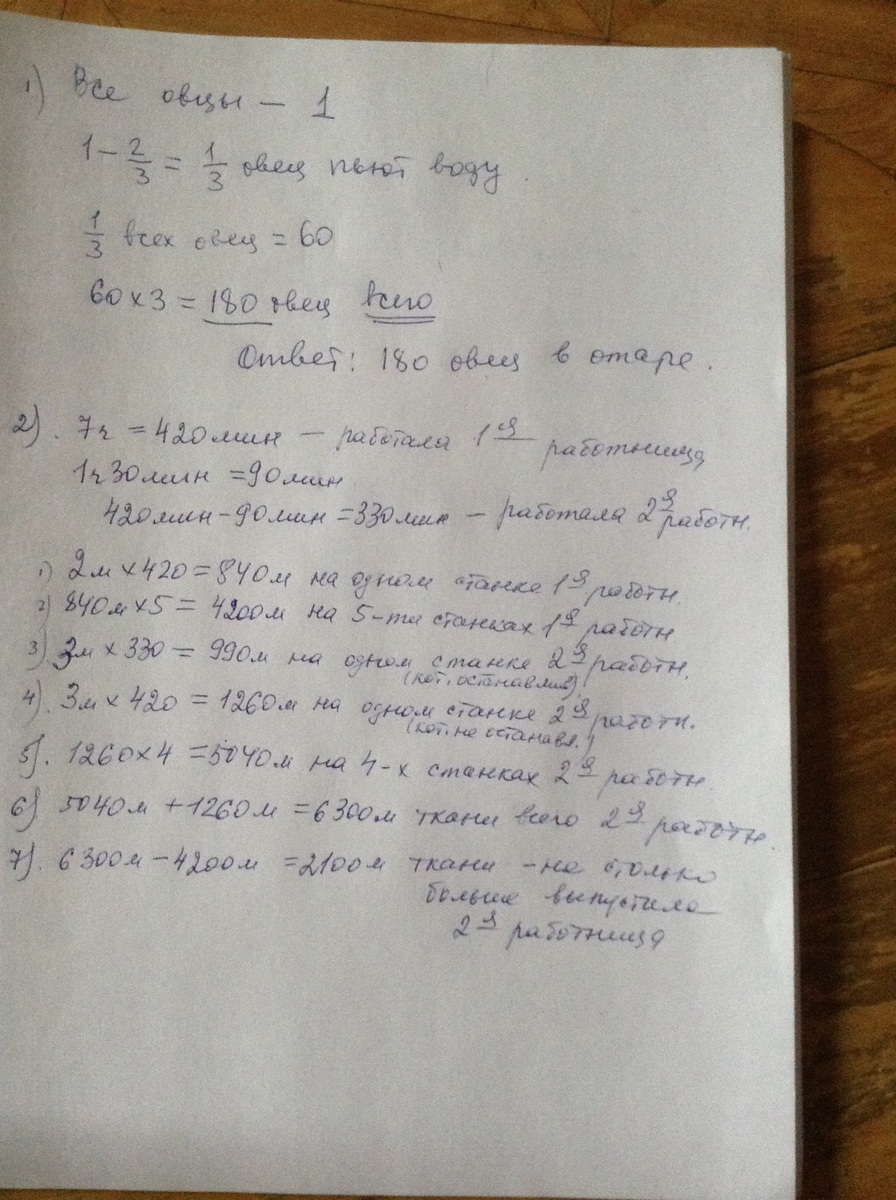 1) Все овцы — 1
1 - 2/3 = 1/3 овец пьют воду.
1/3 всех овец = 60
60 х 3 = 180 овец всего
Ответ: 180 овец в отаре.
2). 7ч = 420мин — работала 1я работница
1ч 30мин = 90мин
420мин - 90мин = 330мин — работала 2я работн.
1) 2м х 420 = 840м на одном станке 1я работн.
2) 840м х 5 = 4200м на 5-ти станках 1я работн
3) 3м х 330 = 990м на одном станке 2я работн.
(кот. останавлив.)
4). 3м х 420 = 1260м на одном станке 2я работн.
(кот. не останавл.)
5). 1260 х 4 = 5040м на 4-х станках 2я работн.
6) 5040м + 1260м = 6300м ткани всего 2я работн.
7). 6300м - 4200м = 2100м ткани - на столько
больше выпустила
2я работница